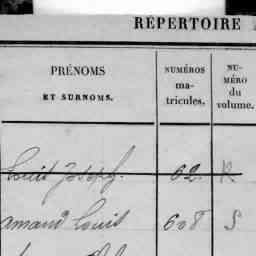 RÉPERTOIRE
PRÉNOMS
ET SURNOMS.
NUMÉROS
ma-
tricules.
NU-
MÉRO
du
volume.
Louis Joseph. 62 R
amand Louis 608 S